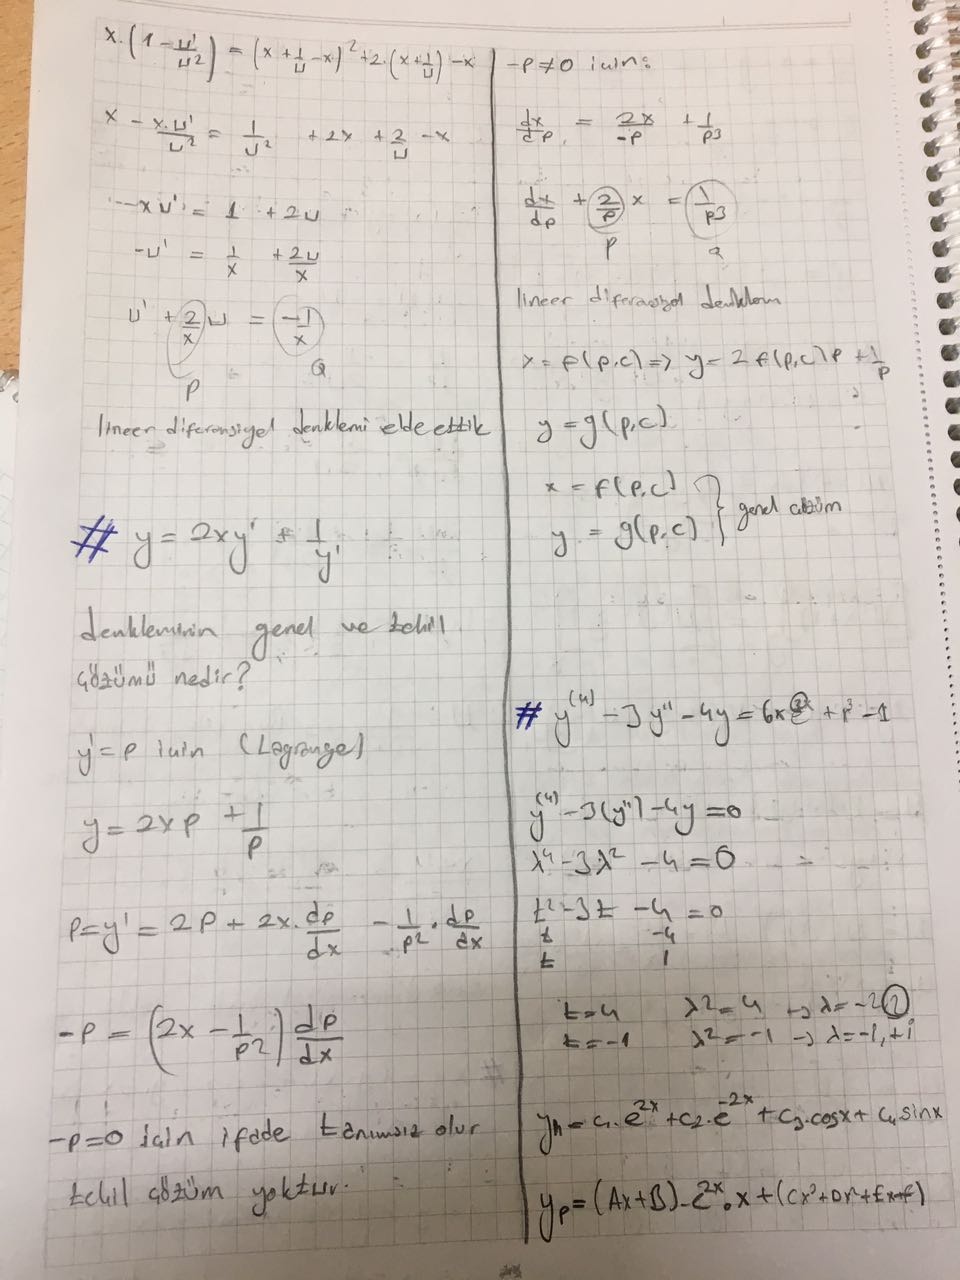 x.(1 - u'/u²) = (x + 1/u - x)² + 2.(x + 1/u) - x
x - x.u'/u² = 1/u² + 2x + 2/u - x
-xu' = 1 + 2u
-u' = 1/x + 2u/x
u' + 2/x u = -1/x
P Q
lineer diferansiyel denklemi elde ettik
# y = 2xy' + 1/y'
denkleminin genel ve tekil
çözümü nedir?
y' = p için (Lagrange)
y = 2xp + 1/p
p = y' = 2p + 2x.dp/dx - 1/p² . dp/dx
-p = (2x - 1/p²) dp/dx
-p=0 için ifade tanımsız olur
tekil çözüm yoktur.
-p≠0 için:
dx/dp = 2x/-p + 1/p³
dx/dp + 2/p x = 1/p³
P Q
lineer diferansiyel denklem
x = f(p,c) => y = 2f(p,c)p + 1/p
y = g(p,c)
x = f(p,c)
y = g(p,c) } genel çözüm
# y⁽⁴⁾ - 3y'' - 4y = 6x e²ˣ + x³ - 1
y⁽⁴⁾ - 3(y'') - 4y = 0
λ⁴ - 3λ² - 4 = 0
t² - 3t - 4 = 0
t -4
t 1
t=4 λ²=4 → λ=-2, 2
t=-1 λ²=-1 → λ=-i,+i
yh = c₁.e²ˣ + c₂.e⁻²ˣ + c₃.cosx + c₄ sinx
yp = (Ax+B).e²ˣ.x + (Cx³+Dx²+Ex+F)